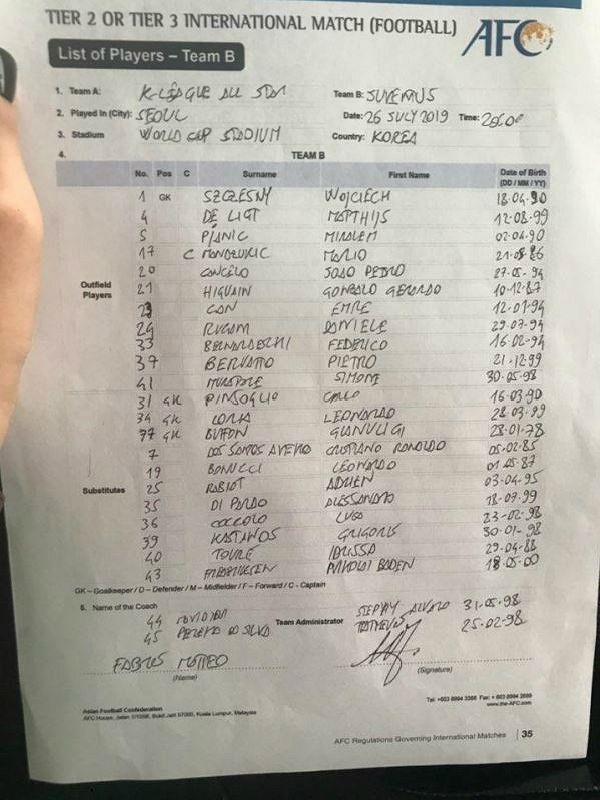 TIER 2 OR TIER 3 INTERNATIONAL MATCH (FOOTBALL)
AFC
List of Players – Team B
1. Team A: K-LEAGUE ALL STAR Team B: JUVENTUS
2. Played in (City): SEOUL Date: 26 JULY 2019 Time:
3. Stadium WORLD CUP STADIUM Country: KOREA
4. TEAM B
No. Pos C Surname First Name Date of Birth (DD / MM / YY)
Outfield Players
1 GK SZCZESNY WOJCIECH 18.04.90
4 DE LIGT MATTHIJS 12.08.99
5 PJANIC MIRALEM 02.04.90
17 C MANDZUKIC MARIO 21.05.86
20 CANCELO JOAO PEDRO 27.05.94
21 HIGUAIN GONZALO GERARDO 10.12.87
23 CAN EMRE 12.01.94
24 RUGANI DANIELE 29.07.94
33 BERNARDESCHI FEDERICO 16.02.94
37 BERUATTO PIETRO 21.12.99
41 MURATORE SIMONE 30.05.98
Substitutes
31 GK PINSOGLIO CARLO 16.03.90
34 GK LORIA LEONARDO 28.03.99
77 GK BUFFON GIANLUIGI 28.01.78
7 DOS SANTOS AVEIRO CRISTIANO RONALDO 05.02.85
19 BONUCCI LEONARDO 01.05.87
25 RABIOT ADRIEN 03.04.95
35 DI PARDO ALESSANDRO 18.07.99
36 COCCOLO LUCA 23.02.98
39 KASTANOS GRIGORIS 30.01.98
40 TOURE IDRISSA 29.04.98
43 18.05.00
GK – Goalkeeper / D – Defender / M – Midfielder / F – Forward / C - Captain
5. Name of the Coach Team Administrator
44 31.05.98
45 PEREIRA DA SILVA MATHEUS 25.02.98
FABRIS MATTEO
(Name) (Signature)
Asian Football Confederation
AFC House, Jalan 1/155B, Bukit Jalil 57000, Kuala Lumpur, Malaysia
Tel: +603 8994 3388 Fax: + 603 8994 2689
www.the-AFC.com
AFC Regulations Governing International Matches | 35